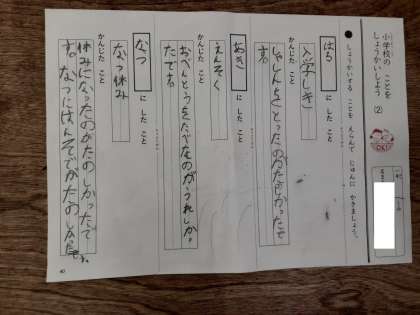 小学校の ことを
しょうかいしよう (2)
しょうかいする ことを えらんで じゅんに かきましょう。
はる
に した こと
入学しき
かんじた こと
しゃしんをとったのがたのしかったです。
あき
に した こと
えんそく
かんじた こと
おべんとうをたべたのがうれしかったです。
なつ
に した こと
なつ休み
かんじた こと
休みになったのがたのしかったです。なつに
40